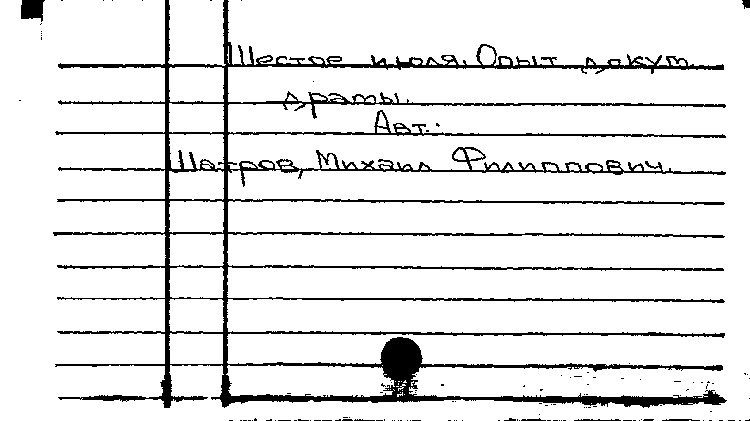 Шестое июля. Опыт докум.
драмы.
Авт.:
Шатров, Михаил Филиппович.